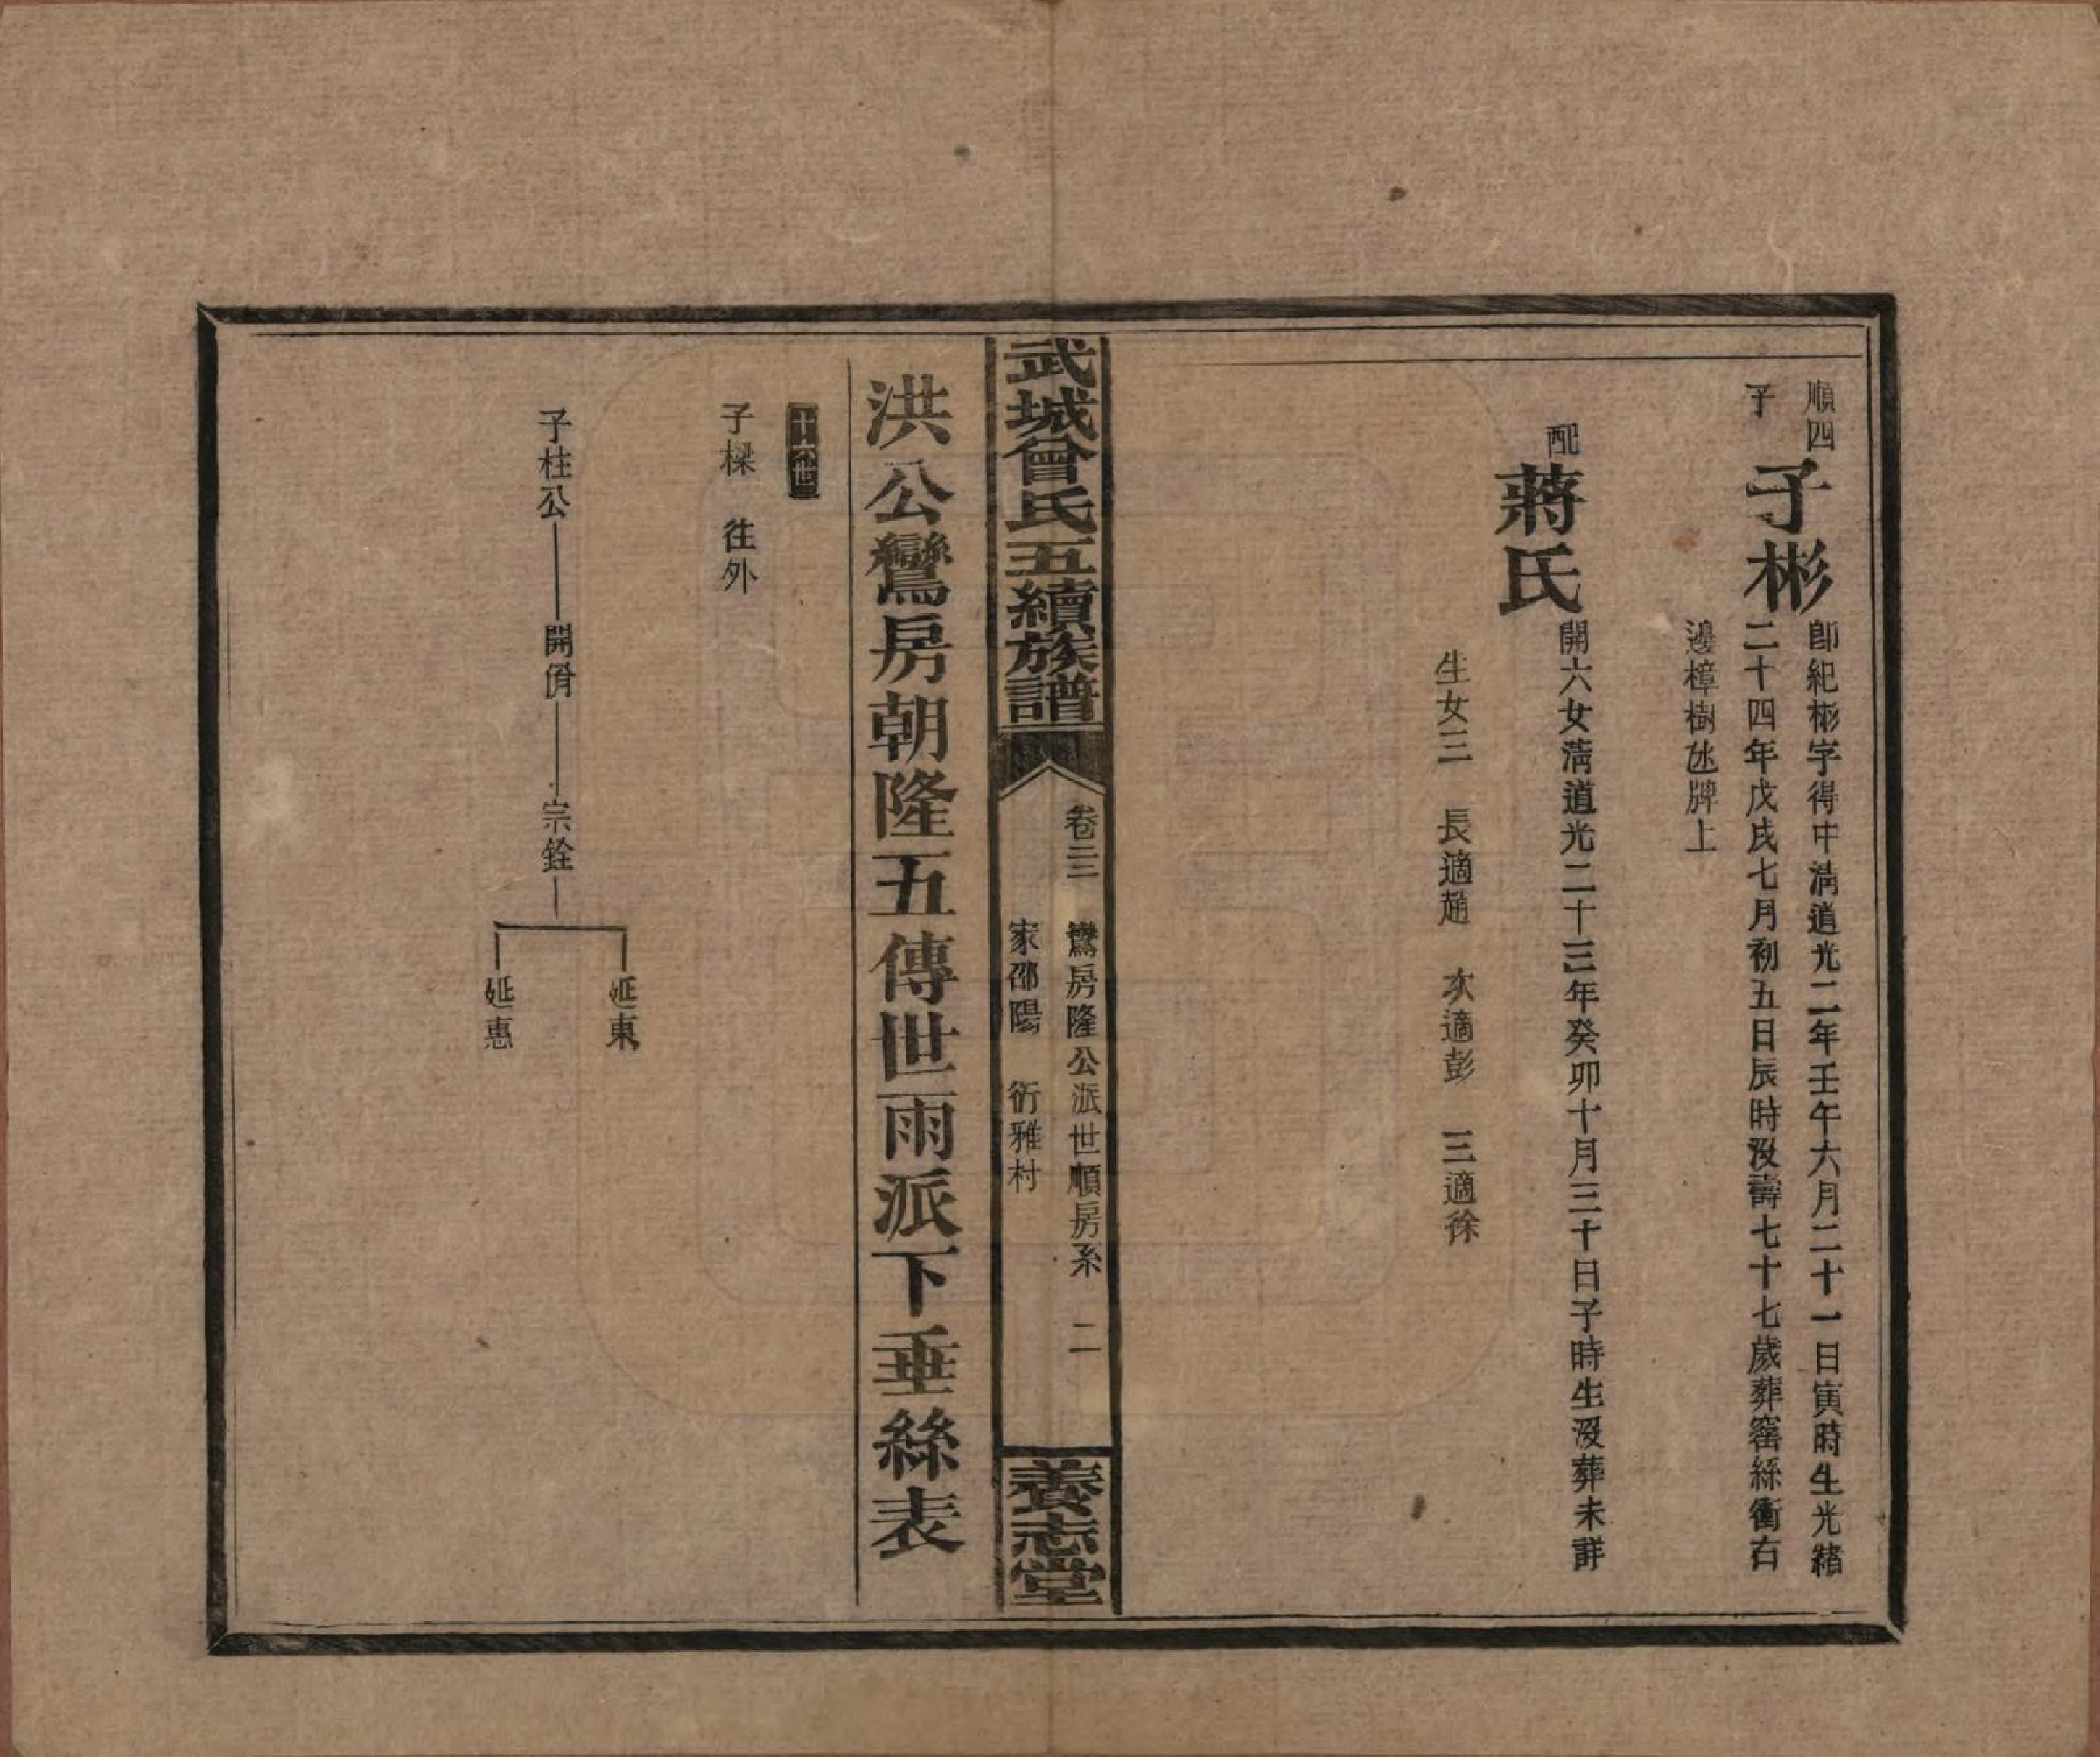 順四
子
子彬
即紀彬字得中淸道光二年壬午六月二十一日寅時生光緒
二十四年戊戌七月初五日辰時沒壽七十七歲葬窰絲衝右
邊樟樹氹牌上
配
蔣氏
開六女淸道光二十三年癸卯十月三十日子時生沒葬未詳
生女三　長適趙　次適彭　三適徐
武城曾氏五續族譜
卷二三　鸞房隆公派世順房系　二
家邵陽　衍雅村
養志堂
洪公鸞房朝隆五傳世雨派下垂絲表
十六世
子樑　往外
子柱公　開佾　宗銓
延東
延惠